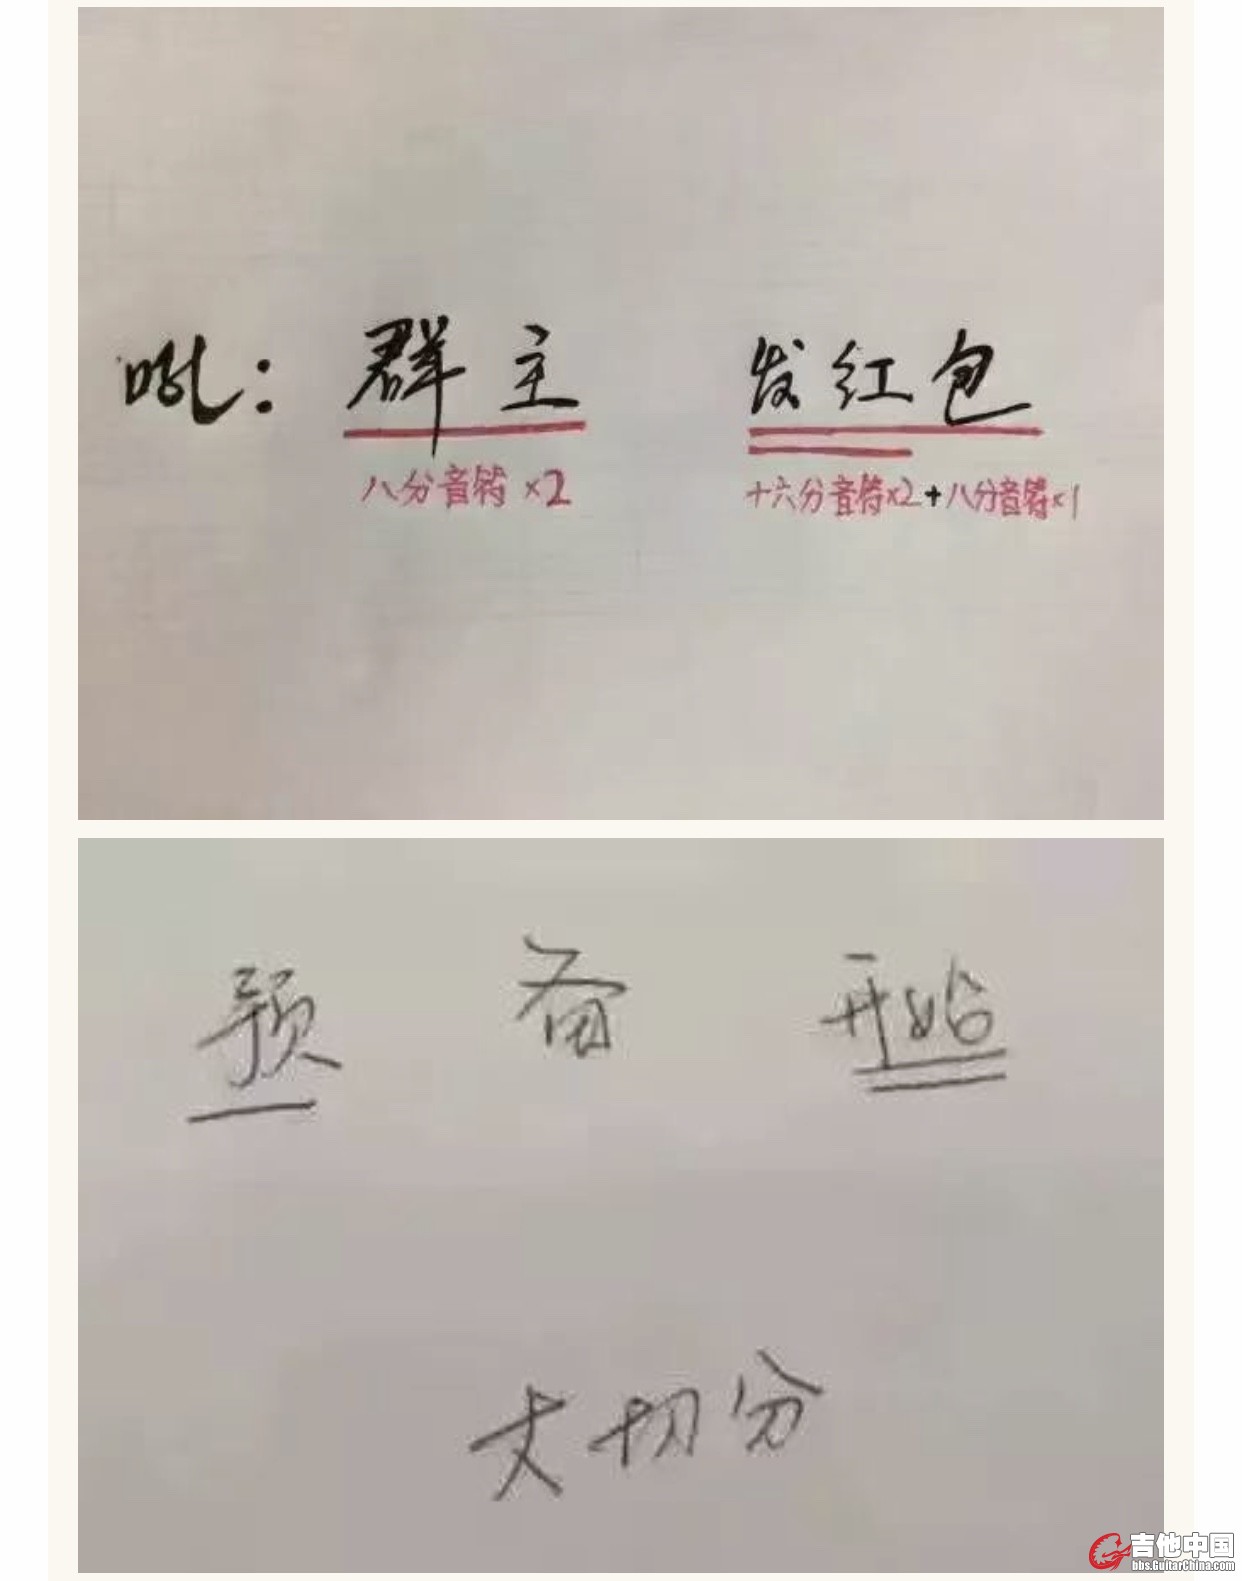 吼：群主 发红包
八分音符×2 十六分音符×2+八分音符×1
预 备 开始
大切分
吉他中国
bbs.GuitarChina.com